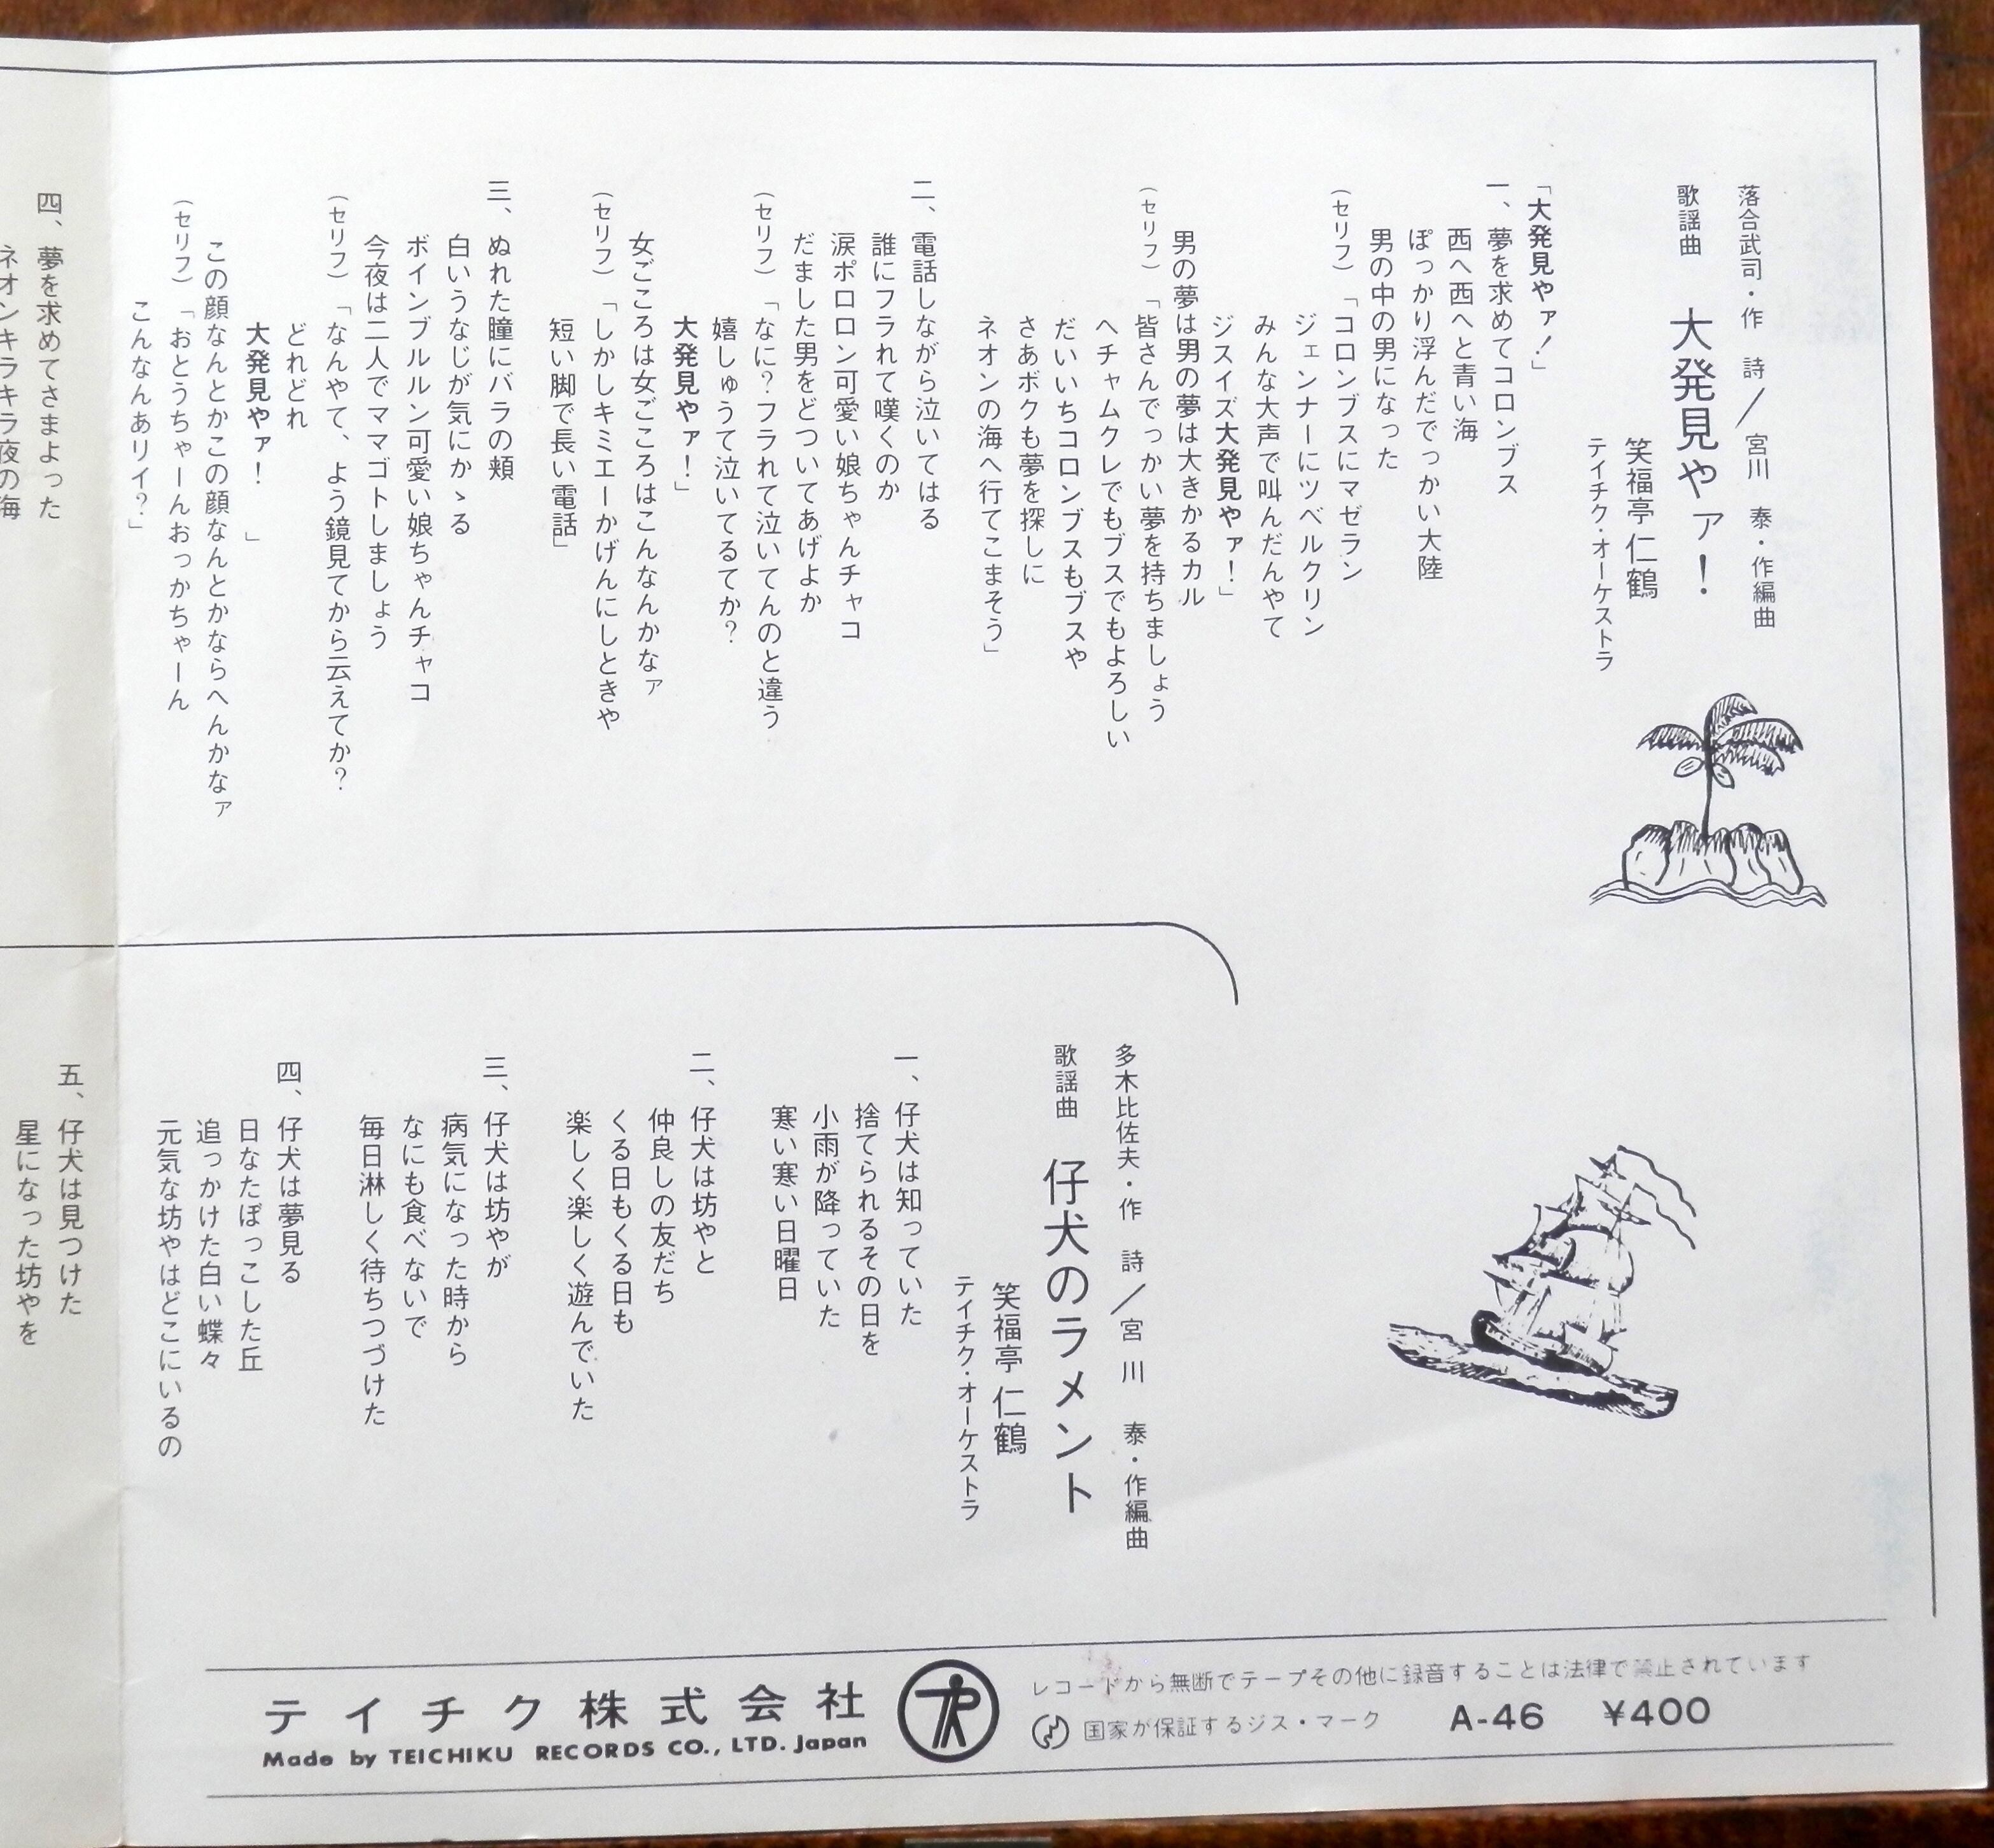 落合武司・作 詩／宮川 泰・作編曲
歌謡曲 大発見やァ！
笑福亭 仁鶴
テイチク・オーケストラ
「大発見やァ！」
一、夢を求めてコロンブス
西へ西へと青い海
ぽっかり浮んだでっかい大陸
男の中の男になった
（セリフ）「コロンブスにマゼラン
ジェンナーにツベルクリン
みんな大声で叫んだんやて
ジスイズ大発見やァ！」
男の夢は男の夢は大きかるカル
（セリフ）「皆さんでっかい夢を持ちましょう
ヘチャムクレでもブスでもよろしい
だいいちコロンブスもブスや
さあボクも夢を探しに
ネオンの海へ行てこまそう」
二、電話しながら泣いてはる
誰にフラれて嘆くのか
涙ポロロン可愛い娘ちゃんチャコ
だました男をどついてあげよか
（セリフ）「なに？フラれて泣いてんのと違う
嬉しゅうて泣いてるてか？
大発見やァ！」
女ごころは女ごころはこんなんかなァ
（セリフ）「しかしキミエーかげんにしときや
短い脚で長い電話」
三、ぬれた瞳にバラの頬
白いうなじが気にかゝる
ボインブルルン可愛い娘ちゃんチャコ
今夜は二人でママゴトしましょう
（セリフ）「なんやて、よう鏡見てから云えてか？
どれどれ
大発見やァ！ 」
この顔なんとかこの顔なんとかならへんかなァ
（セリフ）「おとうちゃーんおっかちゃーん
こんなんあリイ？」
四、夢を求めてさまよった
ネオンキラキラ夜の海
多木比佐夫・作 詩／宮川 泰・作編曲
歌謡曲 仔犬のラメント
笑福亭 仁鶴
テイチク・オーケストラ
一、仔犬は知っていた
捨てられるその日を
小雨が降っていた
寒い寒い日曜日
二、仔犬は坊やと
仲良しの友だち
くる日もくる日も
楽しく楽しく遊んでいた
三、仔犬は坊やが
病気になった時から
なにも食べないで
毎日淋しく待ちつづけた
四、仔犬は夢見る
日なたぼっこした丘
追っかけた白い蝶々
元気な坊やはどこにいるの
五、仔犬は見つけた
星になった坊やを
テイチク株式会社
Made by TEICHIKU RECORDS CO., LTD. Japan
レコードから無断でテープその他に録音することは法律で禁止されています
国家が保証するジス・マーク A-46 ¥400